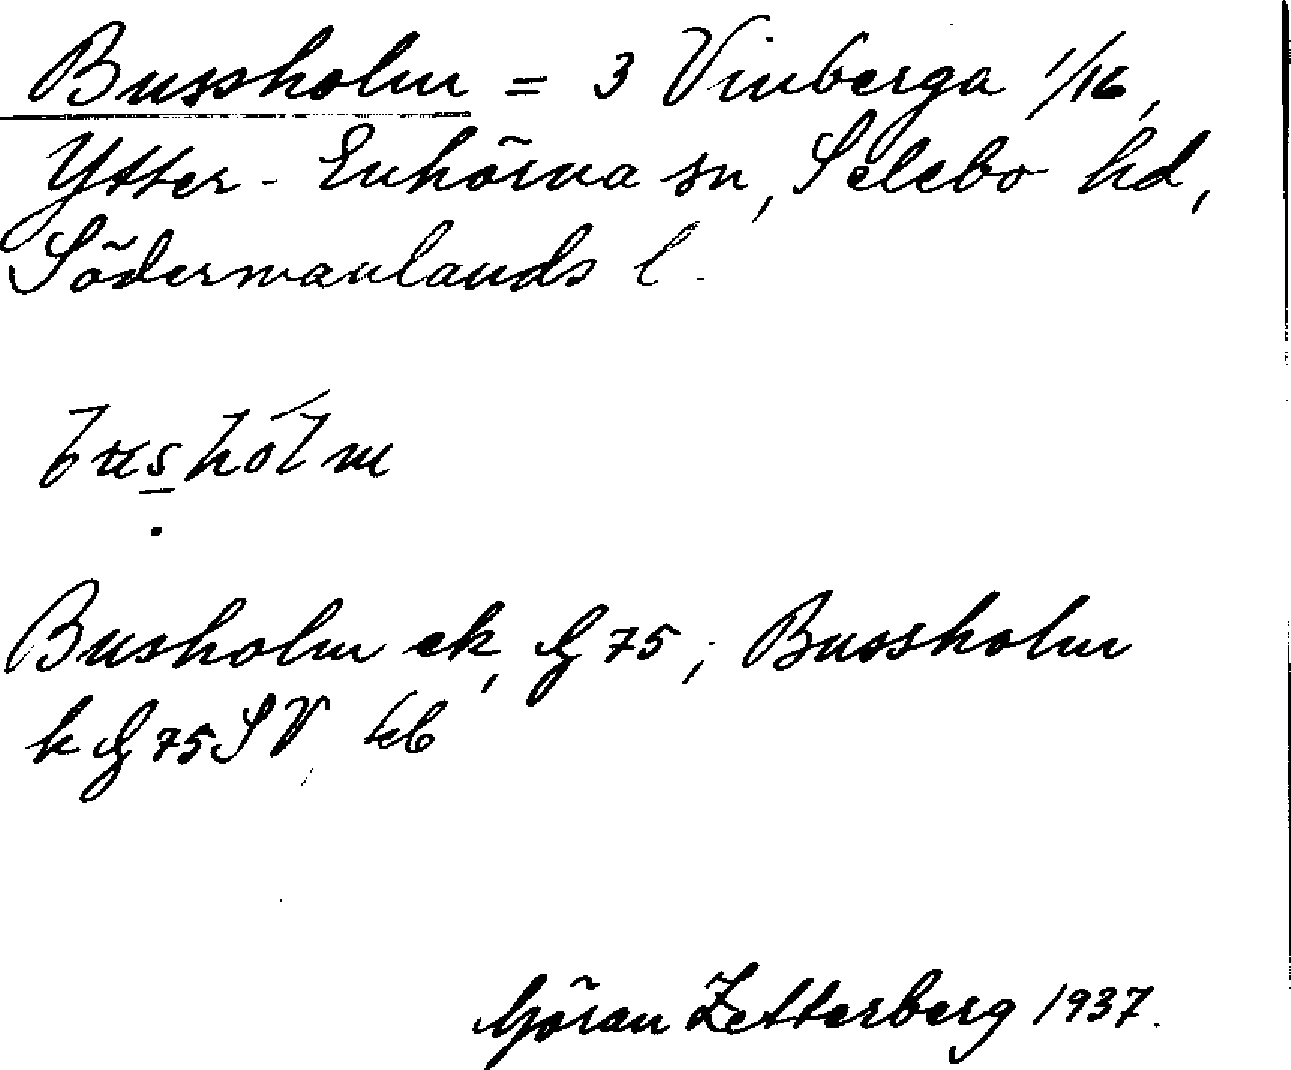 Bussholm = 3 Vinberga 1/16,
Ytter-Enhörna sn, Selebo hd,
Södermanlands l.
busholm
Busholm ek, G 75; Bussholm
k G 75 SV kb
Göran Zetterberg 1937.